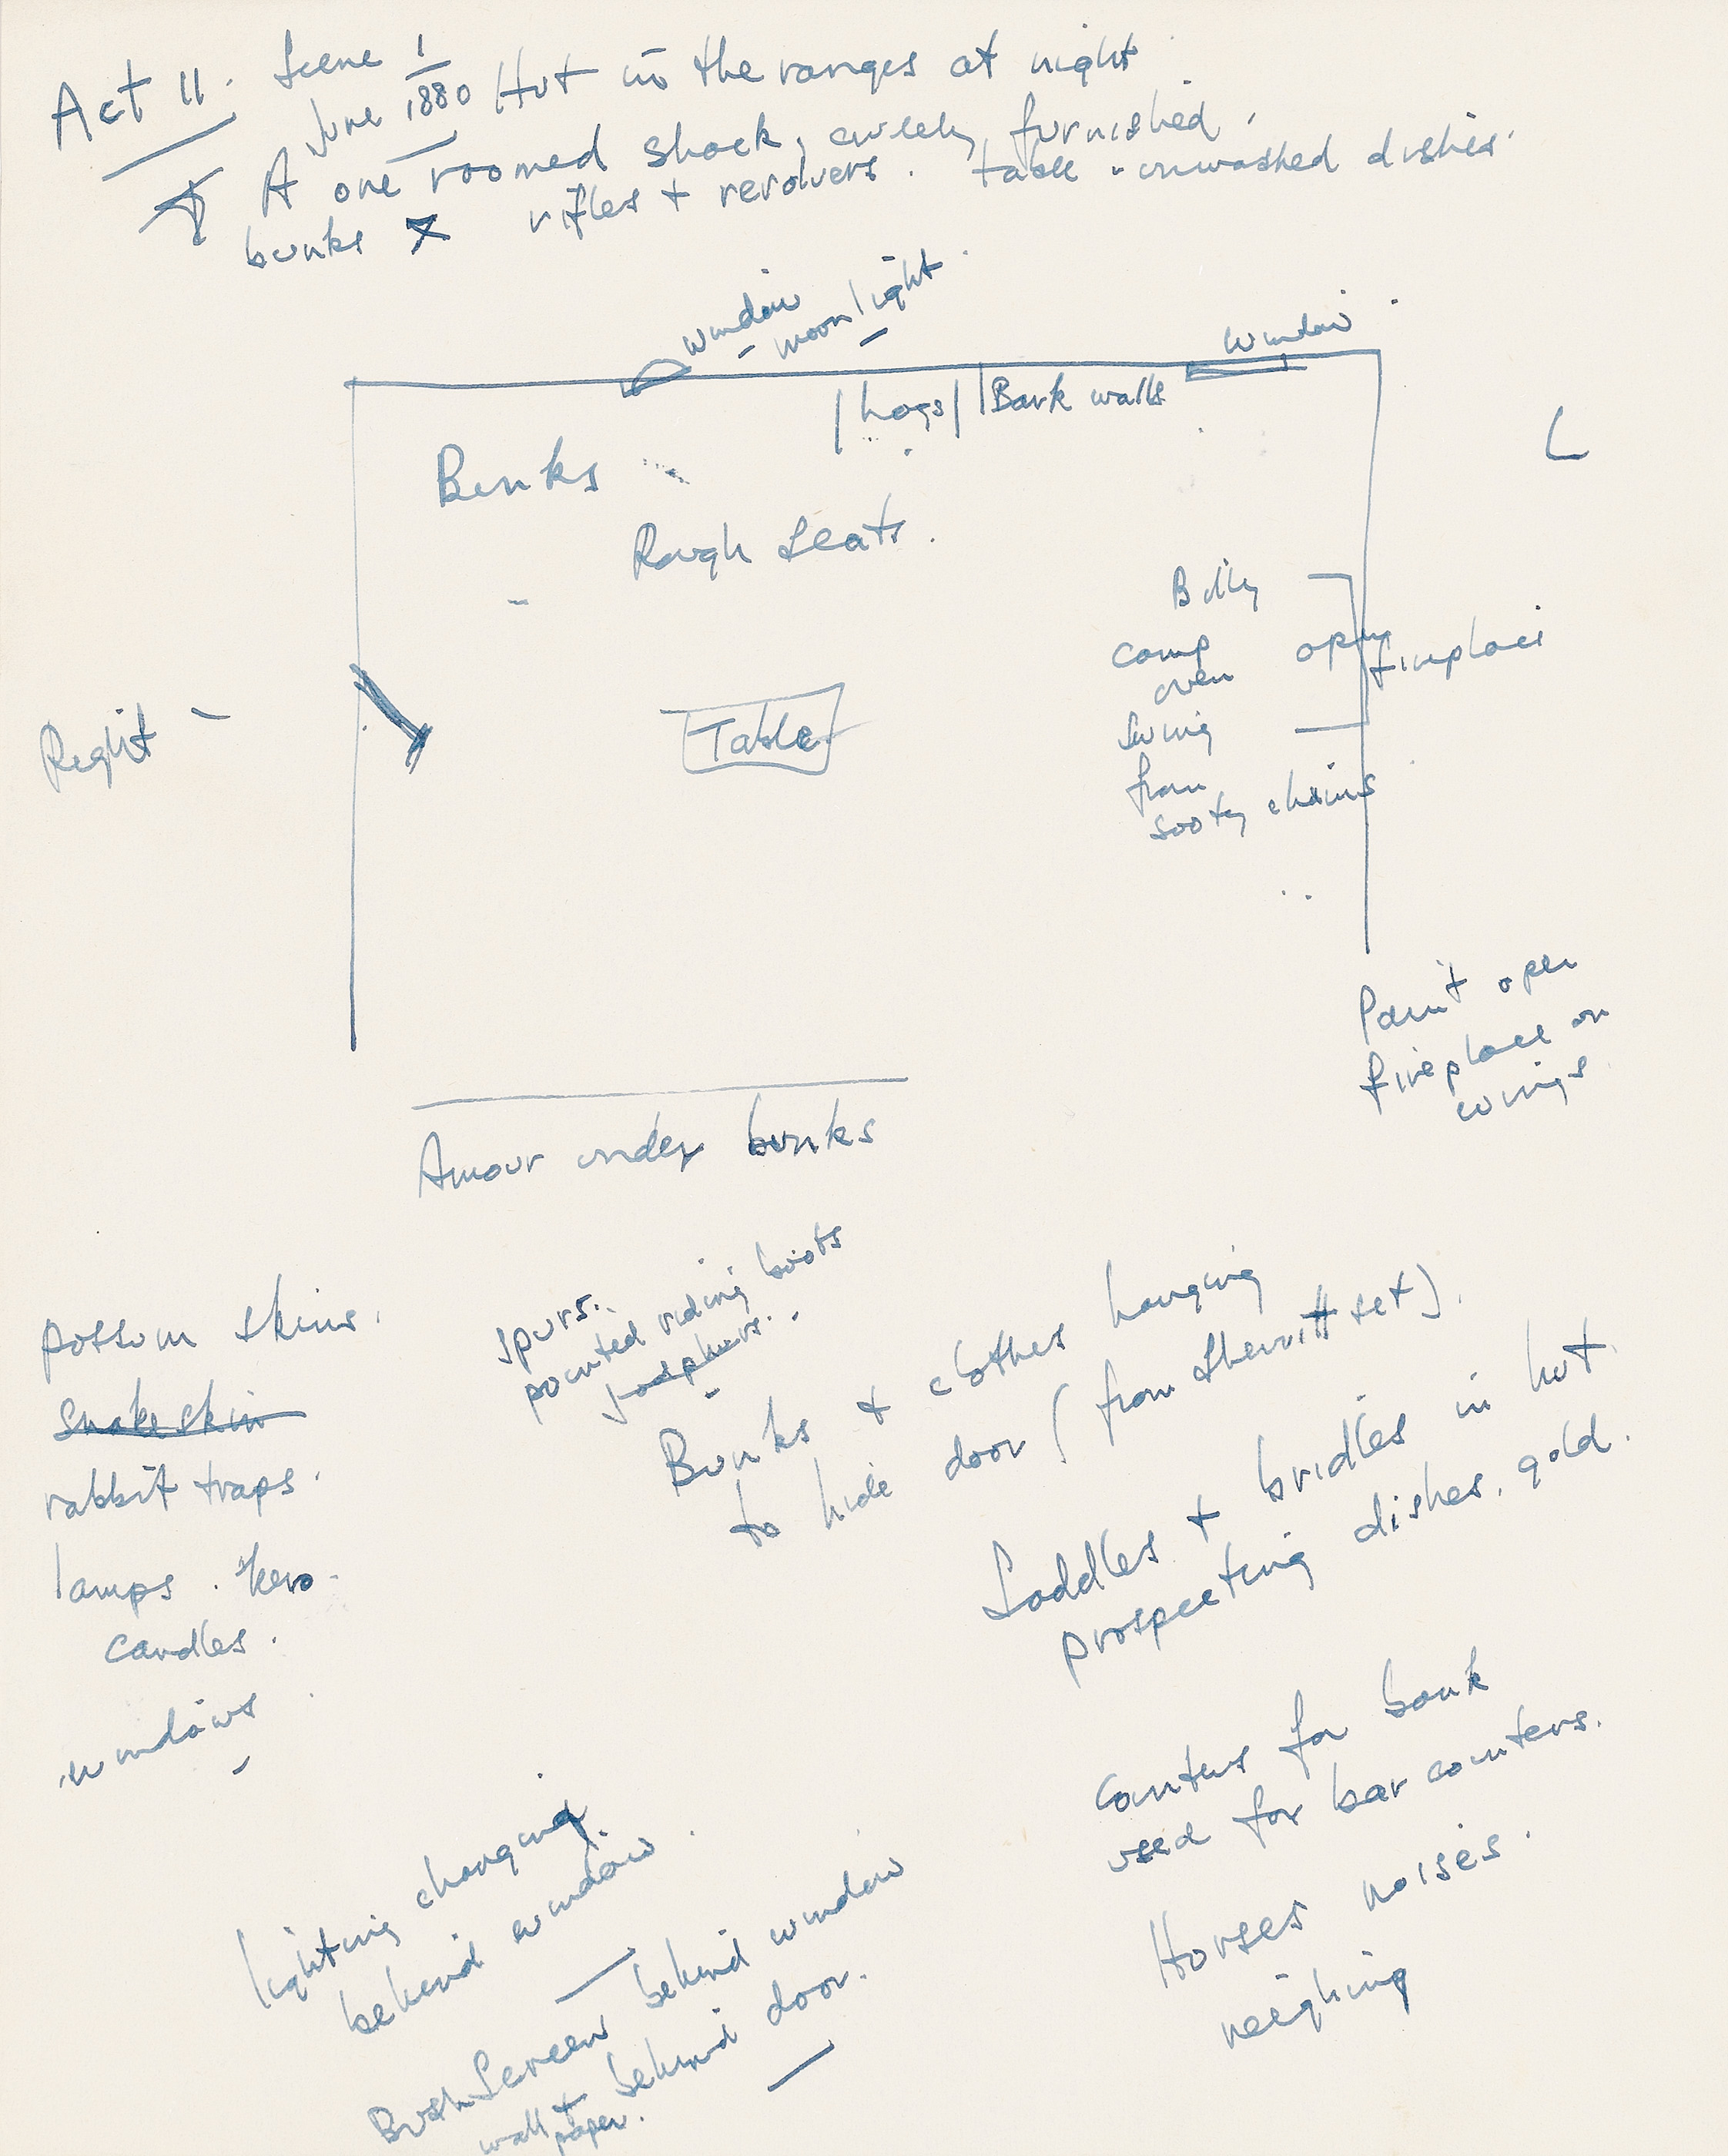 Act II. Scene 1
June 1880 Hut in the ranges at night
A one roomed shack, crudely furnished.
bunks rifles + revolvers. table - unwashed dishes.
window
moonlight.
window
Logs Bark walls
L
Bunks
Rough Seats.
Billy
camp
oven
Swing
from
sooty chains
open fireplace
Right -
Table
Paint open
fireplace on
wings
Amour under bunks
possum skins.
snake skin
rabbit traps.
lamps. Kero.
candles.
windows
spurs.
pointed riding boots
Bunks + clothes hanging
to hide door (from Sherritt set).
Saddles + bridles in hut
prospecting dishes. gold.
Counters for bank
used for bar counters.
Horses noises.
neighing
lighting changing
behind window.
Bush Screen behind window
+ behind door.
wall paper.